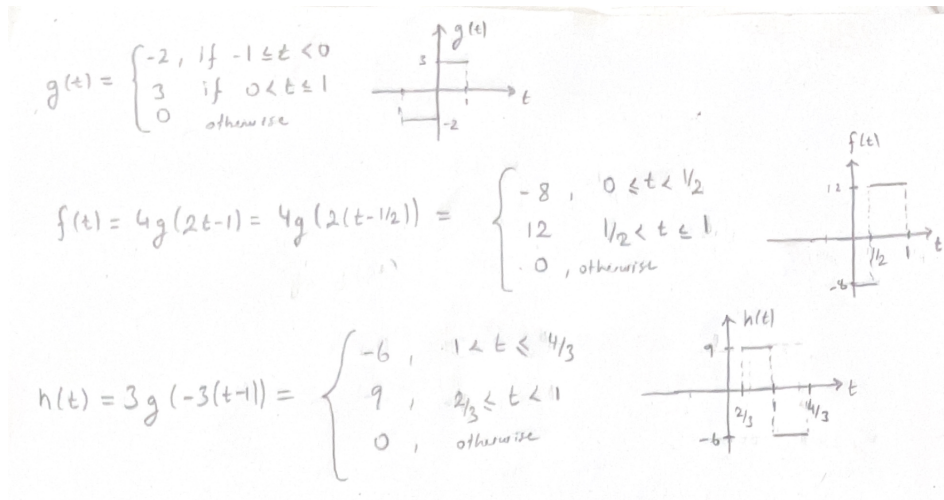 g(t) = { -2, if -1 ≤ t < 0
3 if 0 < t ≤ 1
0 otherwise
g(t)
3
-2
t
f(t) = 4g(2t-1) = 4g(2(t-1/2)) = { -8, 0 ≤ t < 1/2
12 1/2 < t ≤ 1
0, otherwise
f(t)
12
-8
1/2 1 t
h(t) = 3g(-3(t-1)) = { -6, 1 < t ≤ 4/3
9, 2/3 ≤ t < 1
0, otherwise
h(t)
9
-6
2/3 1 4/3 t